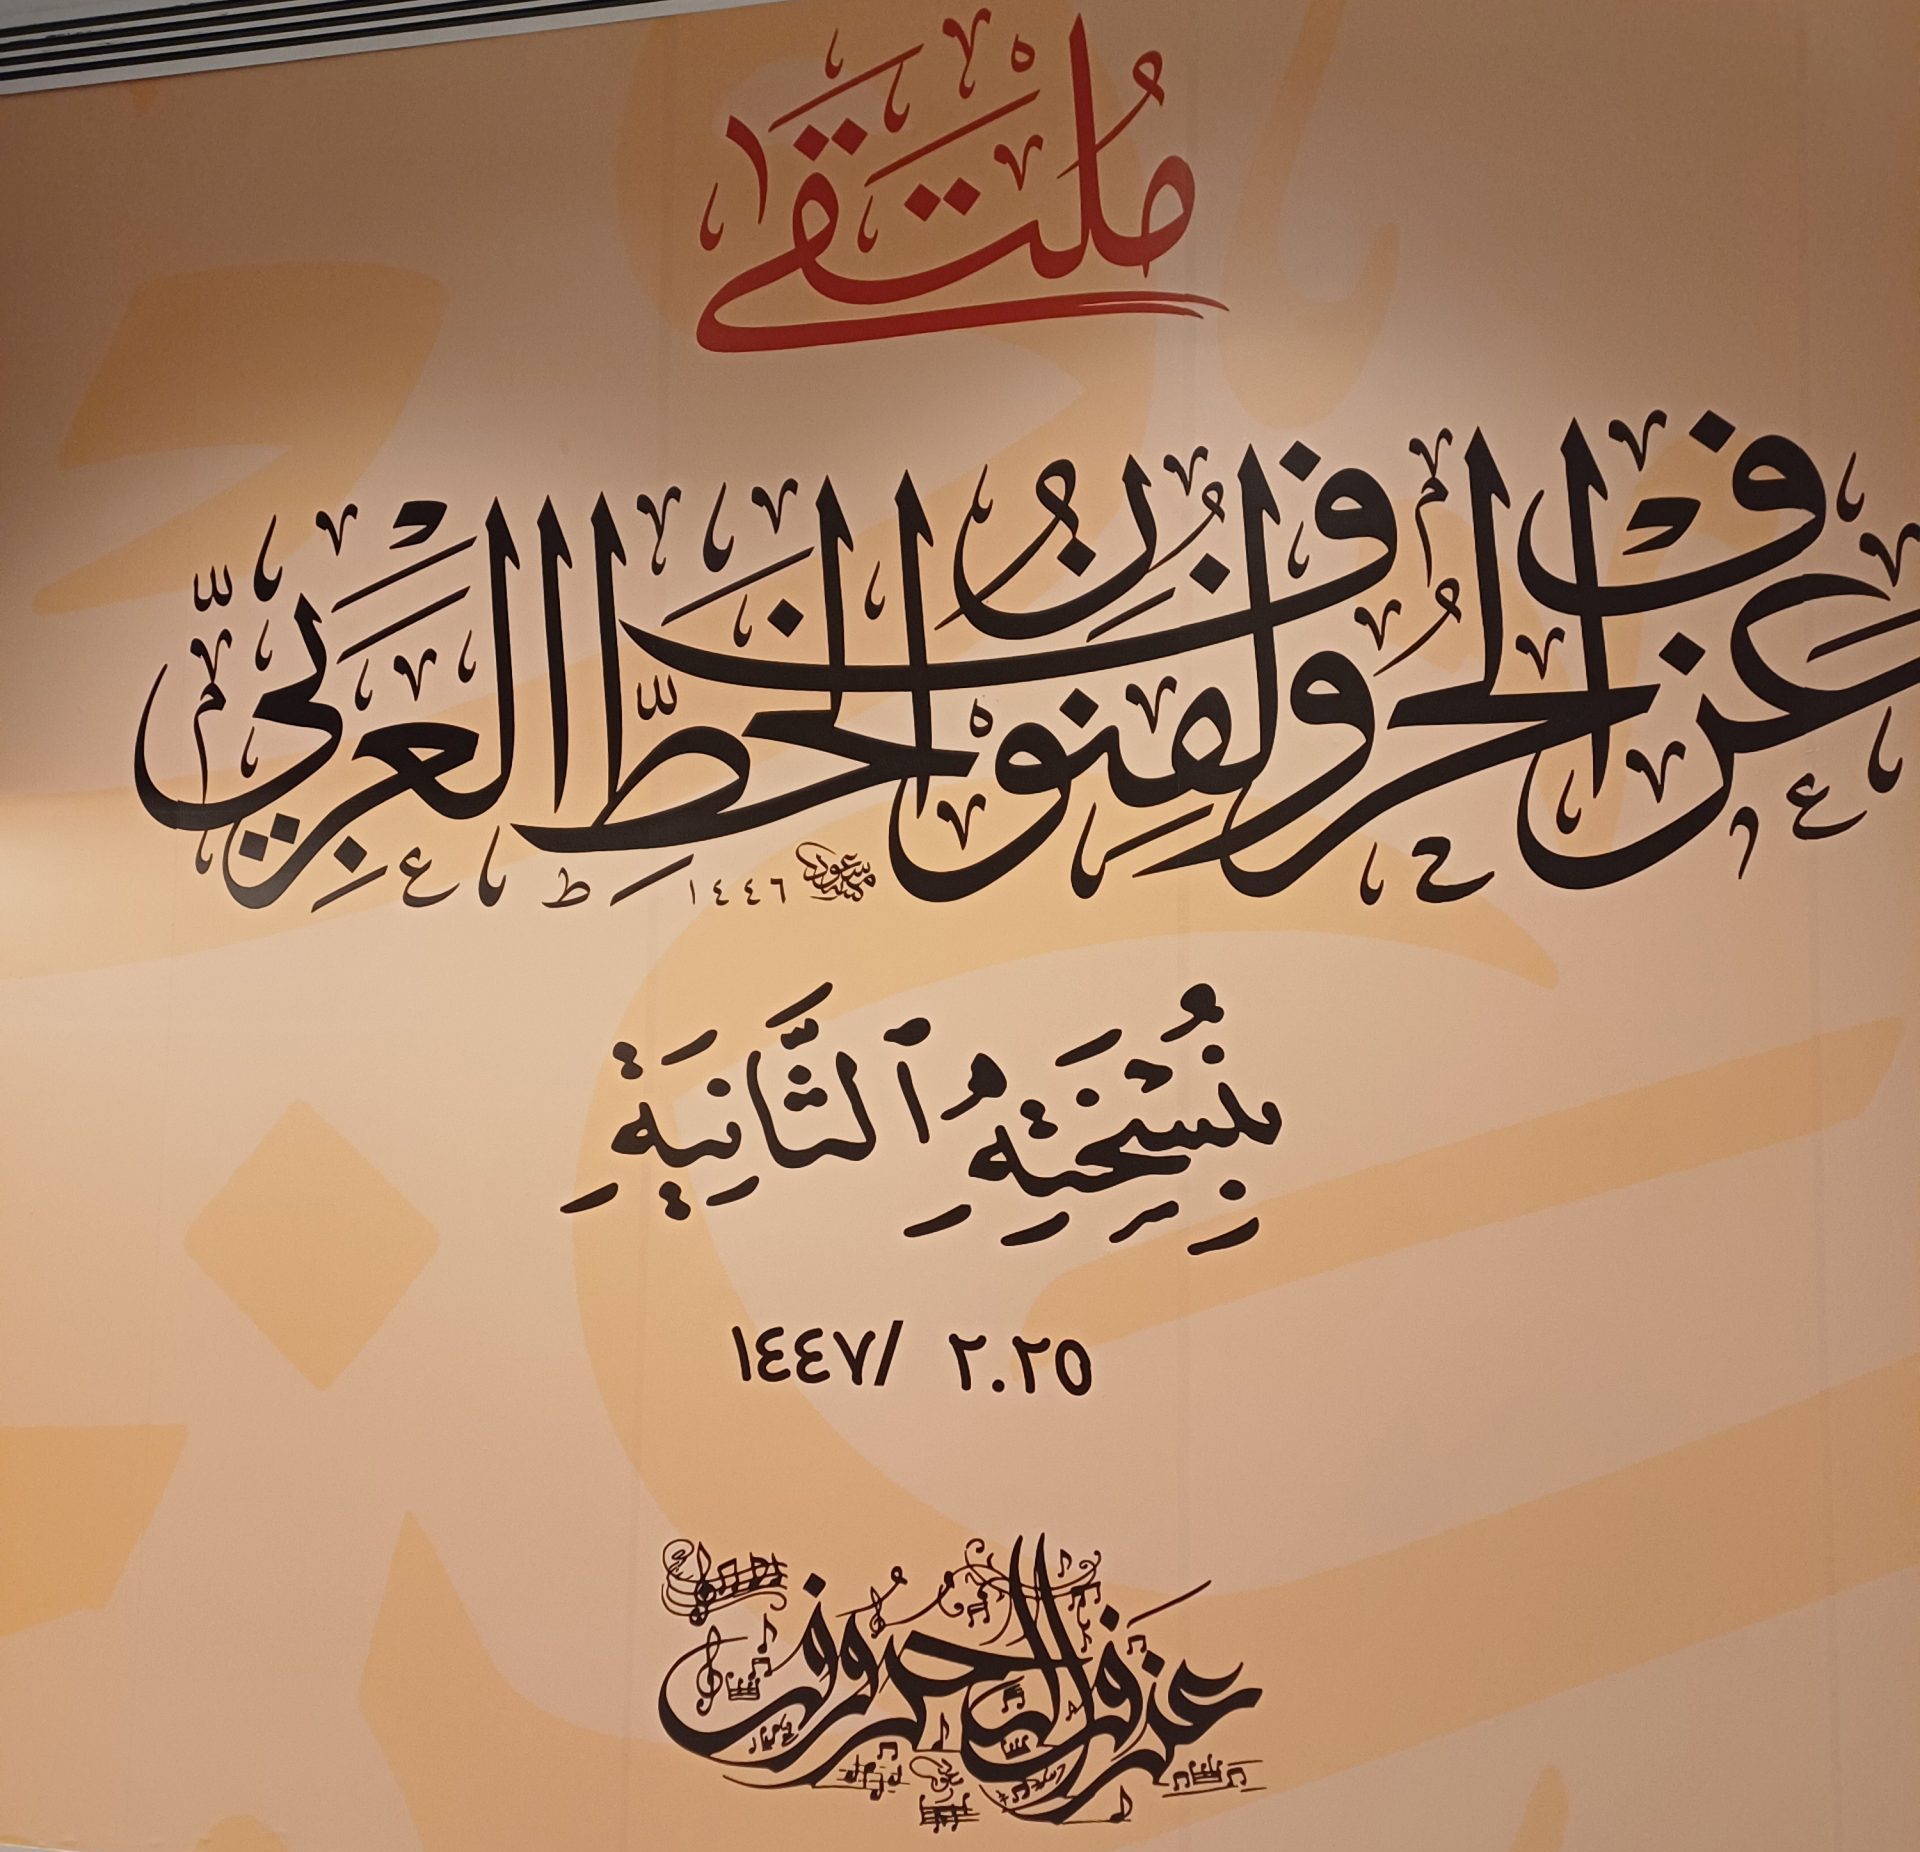 مُلْتَقَى
عزف الحروف لفنون الخطّ العربيّ
مسعود ١٤٤٦
بِنُسْخَتِهِ ٱلثَّانِيَةِ
٢٠٢٥ /١٤٤٧
عزف الحروف